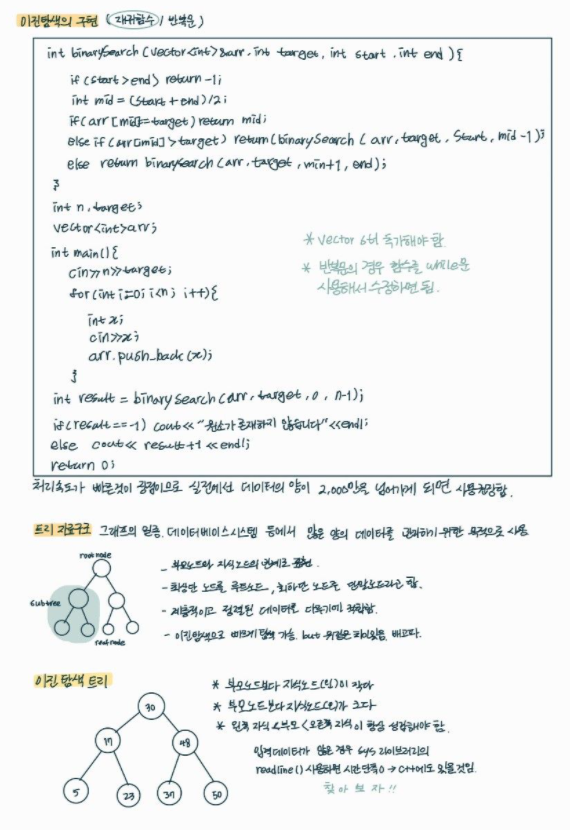 이진탐색의 구현 (재귀함수 / 반복문)
int binarySearch (vector<int>&arr, int target, int start, int end) {
if (start>end) return -1;
int mid = (start + end)/2;
if(arr[mid]==target) return mid;
else if (arr[mid]>target) return(binarySearch (arr, target, start, mid-1);
else return binarysearch (arr, target, min+1, end);
}
int n, target;
vector<int>arr;
int main() {
cin>>n>>target;
for(int i=0; i<n; i++){
int x;
cin>>x;
arr.push_back(x);
}
int result = binarySearch(arr, target, 0, n-1);
if(result == -1) cout<<"원소가 존재하지 않습니다"<<endl;
else cout<< result+1 <<endl;
return 0;
* vector stl 추가해야 함.
* 반복문의 경우 함수를 while문
사용해서 수정하면 됨.
처리속도가 빠른것이 장점이므로 실전에선 데이터의 양이 2,000만을 넘어가게 되면 사용권장함.
트리 자료구조 그래프의 일종. 데이터베이스시스템 등에서 많은 양의 데이터를 관리하기 위한 목적으로 사용
root node
subtree
- 부모노드와 자식노드의 관계로 표현.
- 최상단 노드를 루트노드, 최하단 노드로 단말노드라고 함.
- 계층적이고 정렬된 데이터를 다루기에 적합함.
- 이진탐색으로 빠르게 탐색 가능. but
이진 탐색 트리
* 부모노드보다 자식노드(왼)이 작다
* 부모노드보다 자식노드(오)가 크다
* 왼쪽 자식 < 부모 < 오른쪽 자식이 항상 성립해야 함.
입력데이터가 많은 경우 sys 라이브러리의
readline() 사용하면 시간단축 → C++에도 있을것임.
찾아 보자!!
30
17 48
5 23 37 50